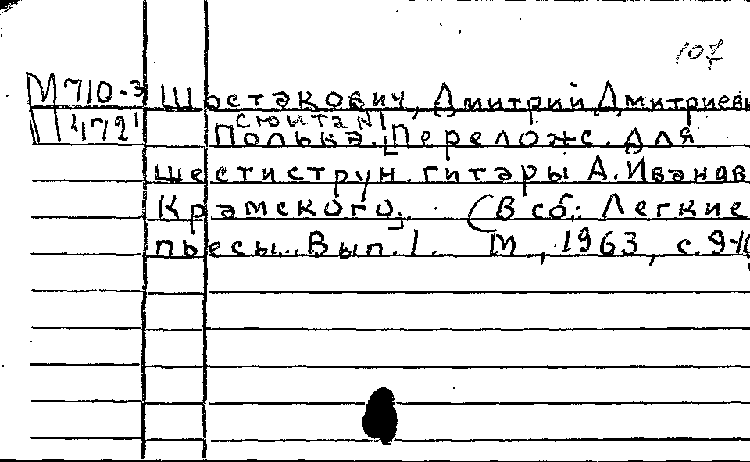 107
М710-3 Шостакович, Дмитрий Дмитриеви
П472 сюита №1
Полька. [Перелож. для
шестиструн. гитары А. Иванов
Крамского]. (В сб.: Легкие
пьесы. Вып. 1. М, 1963, с. 9-10